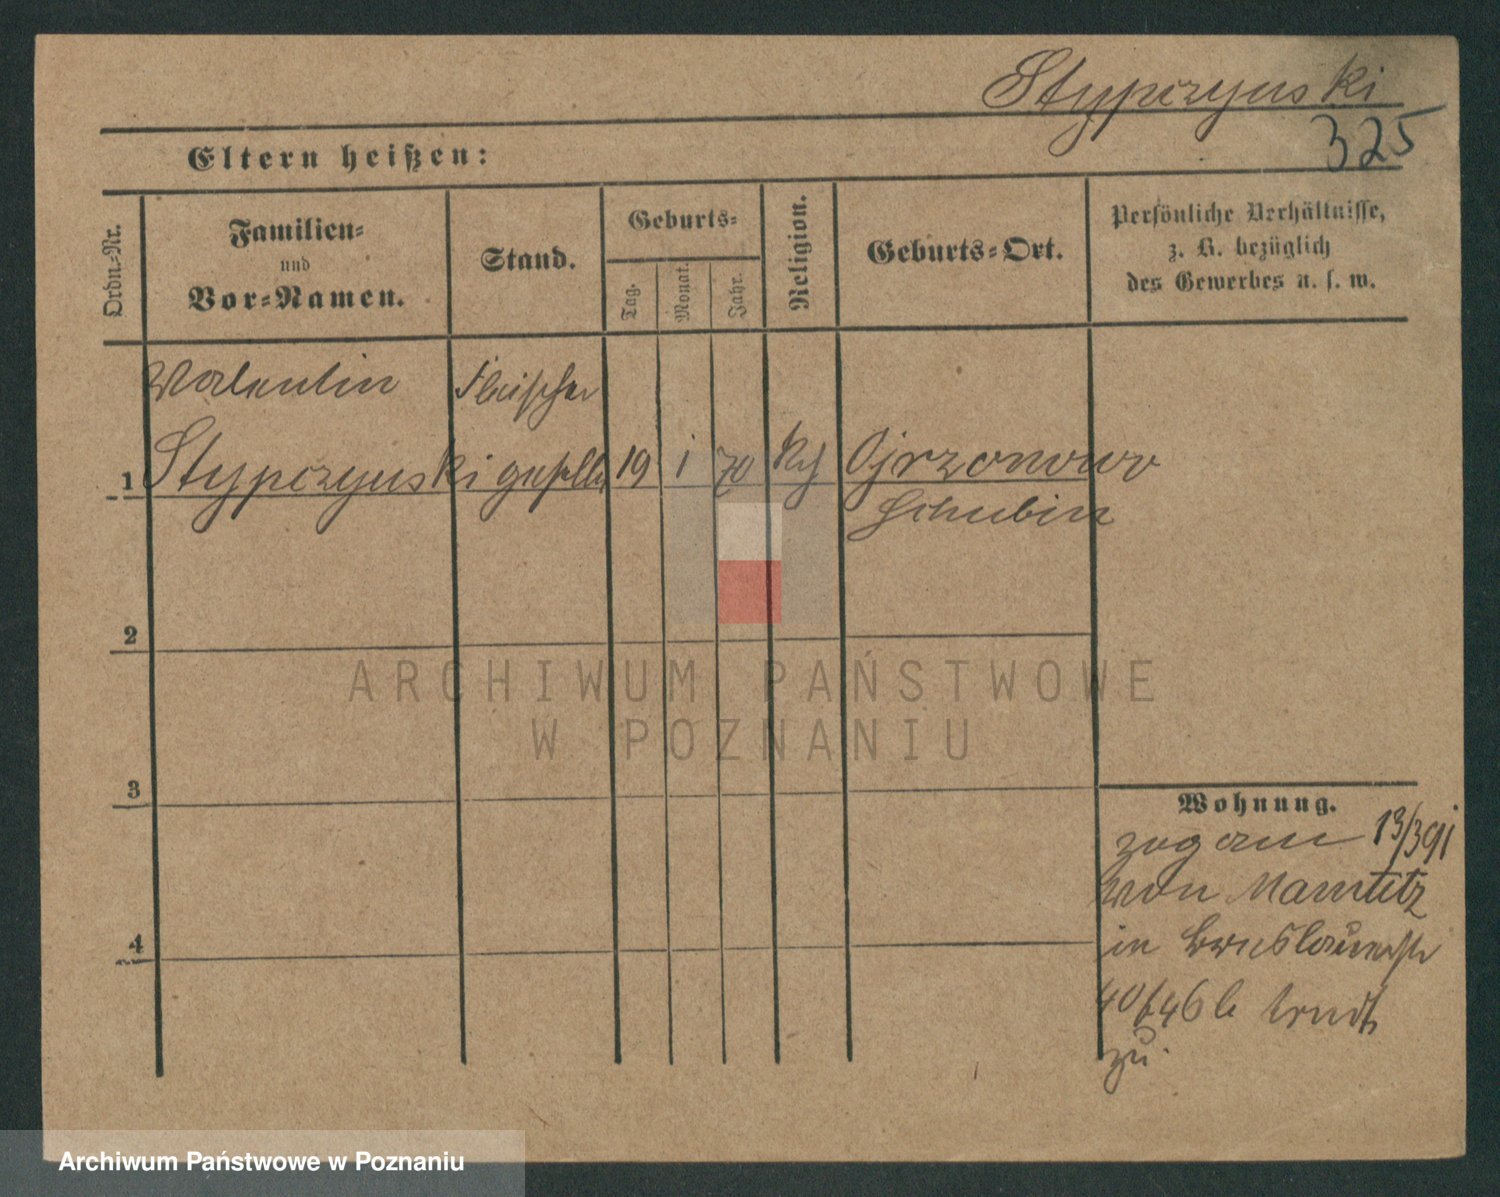 Stypczynski
325
Eltern heißen:
Ordn.-Nr.
Familien-
und
Vor-Namen.
Stand.
Geburts-
Tag.
Monat.
Jahr.
Religion.
Geburts-Ort.
Persönliche Verhältnisse,
z. B. bezüglich
des Gewerbes u. s. w.
Valentin Fleischer
1 Stypczynski geselle 19 1 70 Ojrzonowo
Schubin
2
3
4
Wohnung.
zug am 13/3 91
von
in Breslauerstr
40 b
zu
ARCHIWUM PAŃSTWOWE
W POZNANIU
Archiwum Państwowe w Poznaniu